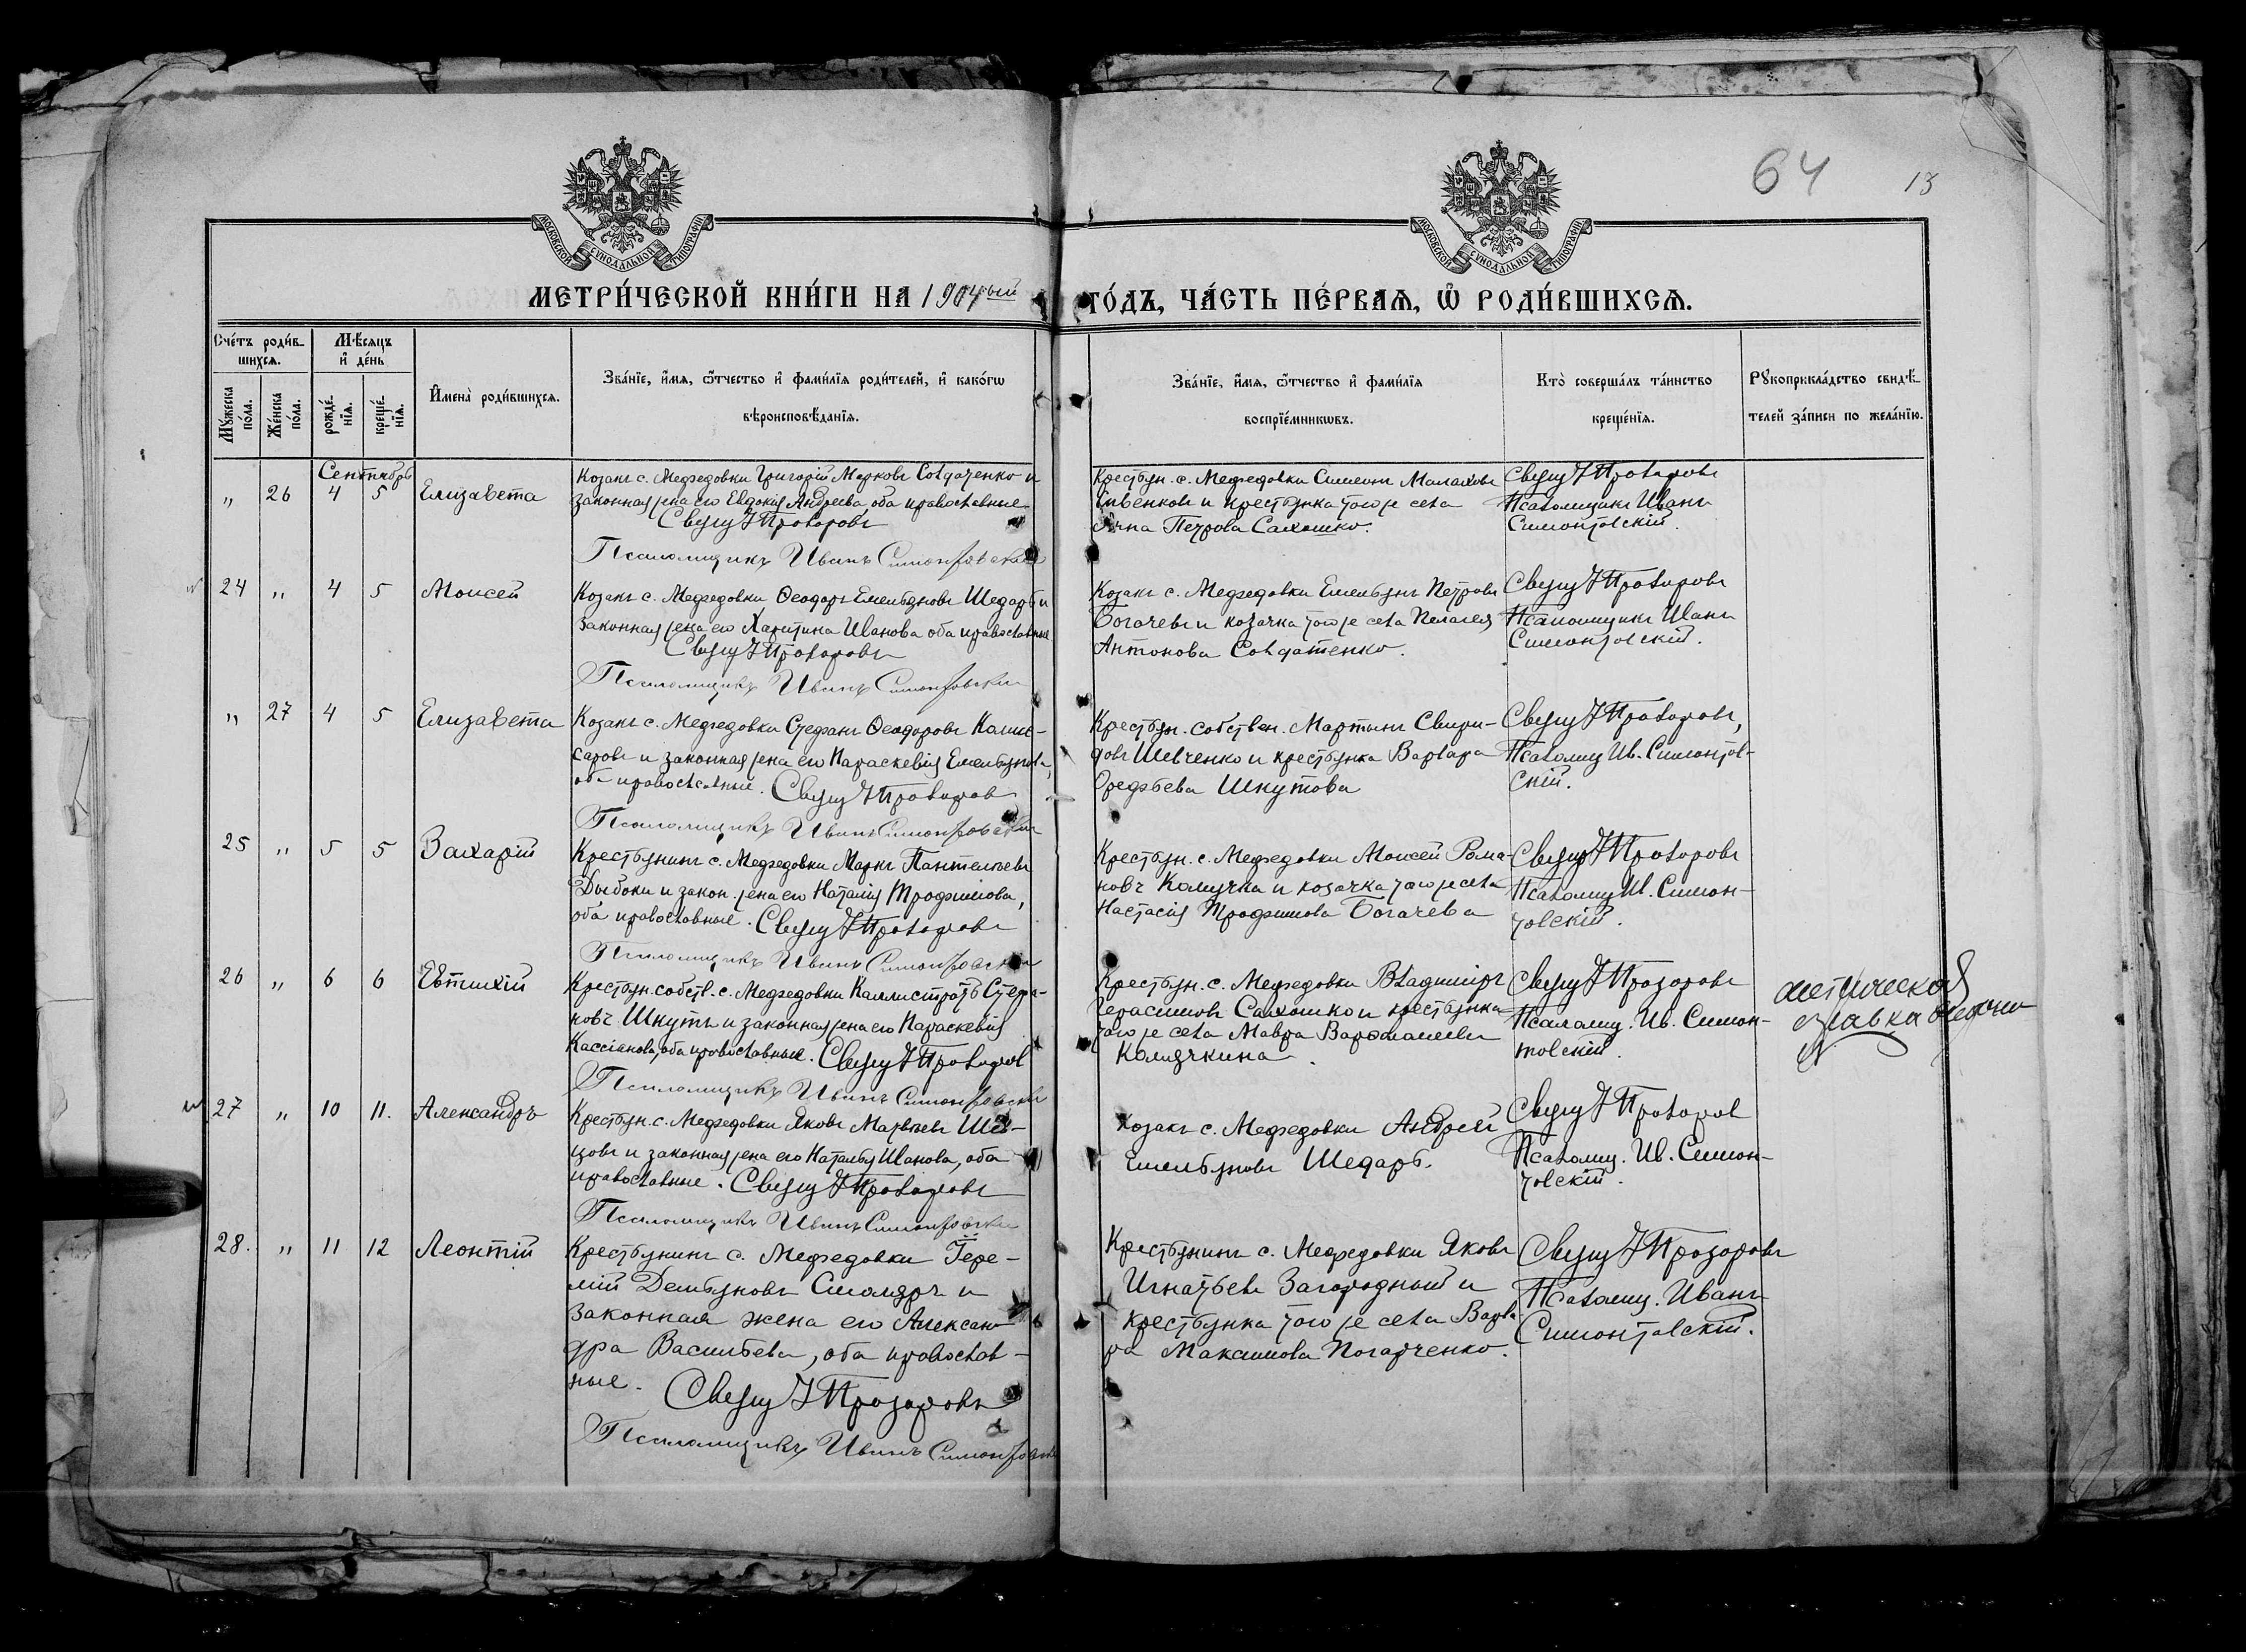 64
13
МОСКОВСКОЙ СѴНОДАЛЬНОЙ ТИПОГРАФІИ
МОСКОВСКОЙ СѴНОДАЛЬНОЙ ТИПОГРАФІИ
МЕТРИ́ЧЕСКОЙ КНИ́ГИ НА 1904ый
ГО́ДЪ, ЧА́СТЬ ПЕ́РВАѦ, Ѡ҆ РОДИ́ВШИХСѦ.
Сче́тъ роди́в-
шихсѧ.
Мꙋ́жеска по́ла.
Же́нска по́ла.
Мѣ́сѧцъ
и҆ де́нь
рожде́-
нїѧ.
креще́-
нїѧ.
И҆мена̀ роди́вшихсѧ.
Зва́нїе, и҆́мѧ, ѻ҆́тчество и҆ фами́лїѧ роди́телей, и҆ како́гѡ
вѣроисповѣ́данїѧ.
Зва́нїе, и҆́мѧ, ѻ҆́тчество и҆ фами́лїѧ
воспрїе́мникѡвъ.
Кто̀ соверша́лъ та́инство
креще́нїѧ.
Рꙋкоприкла́дство свидѣ́-
телей за́писи по жела́нїю.
Сентябрь
" 26 4 5 Елизавета
Козакъ с. Медведовки Григорій Марковъ Солдаченко и
законная жена его Евдокія Андреева, оба православные
Свящ. І Прозоровъ
Псаломщикъ Иванъ Симонтовскій
Крестьян. с. Медведовки Симеонъ Малаховъ
и крестьянка того же села
Анна Петрова Сахошко.
Свящ. І Прозоровъ
Псаломщикъ Иванъ
Симонтовскій.
24 " 4 5 Моисей
Козакъ с. Медведовки Ѳеодоръ Емельяновъ Шедарь и
законная жена его Харитина Иванова оба православные
Свящ. І Прозоровъ
Псаломщикъ Иванъ Симонтовскій
Козакъ с. Медведовки Емельянъ Петровъ
Богачевъ и козачка того же села Пелагея
Антонова Солдатенко.
Свящ. І Прозоровъ
Псаломщикъ Иванъ
Симонтовскій.
" 27 4 5 Елизавета
Козакъ с. Медведовки Стефанъ Ѳеодоровъ Комис-
саровъ и законная жена его Параскевія Емельянова,
оба православные. Свящ. І Прозоров
Псаломщикъ Иванъ Симонтовскій
Крестьян. собствен. Мартынъ Свири-
довъ Шевченко и крестьянка Варвара
Шкутова
Свящ. І Прозоровъ,
Псаломщ Ив. Симонтов-
скій.
25 " 5 5 Захарій
Крестьянинъ с. Медведовки Маркъ Пантелеевъ
и закон. жена его Наталія Трофимова,
оба православные. Свящ. І Прозоровъ
Псаломщикъ Иванъ Симонтовскій
Крестьян. с. Медведовки Моисей Рома-
новъ Комячка и козачка того же села
Настасія Трофимова Богачева
Свящ. І Прозоровъ
Псаломщ Ив. Симон-
товскій.
26 " 6 6 Евтихій
Крестьян. собств. с. Медведовки Каллистратъ Стефа-
новъ Шкуть и законная жена его Параскевія
Кассіанова, оба православные. Свящ. І Прозоров
Псаломщикъ Иванъ Симонтовскій
Крестьян. с. Медведовки Владимиръ
Герасимовъ Сахошко и крестьянка
того же села Мавра Варфоламеева
Комячкина
Свящ. І Прозоровъ
Псаломщ. Ив. Симон-
товскій.
27 " 10 11. Александръ
Крестьян. с. Медведовки Яковъ Матвеевъ Шев-
цовъ и законная жена его Наталья Иванова, оба
православные. Свящ. І Прозоровъ
Псаломщикъ Иванъ Симонтовскій
Козакъ с. Медведовки Андрей
Емельяновъ Шедарь.
Свящ. І Прозоров
Псаломщ. Ив. Симон-
товскій.
28. " 11 12 Леонтій
Крестьянинъ с. Медведовки Іере-
мій Демьяновъ Смоляръ и
законная жена его Александ-
дра Васильева, оба православ-
ные. Свящ. І Прозоровъ
Псаломщикъ Иванъ Симонтовскій
Крестьянинъ с. Медведовки Яковъ
Игнатьевъ Загородный и
крестьянка того же села Варва-
ра Максимова Погарченко.
Свящ. І Прозоровъ
Псаломщ. Иванъ
Симонтовскій.